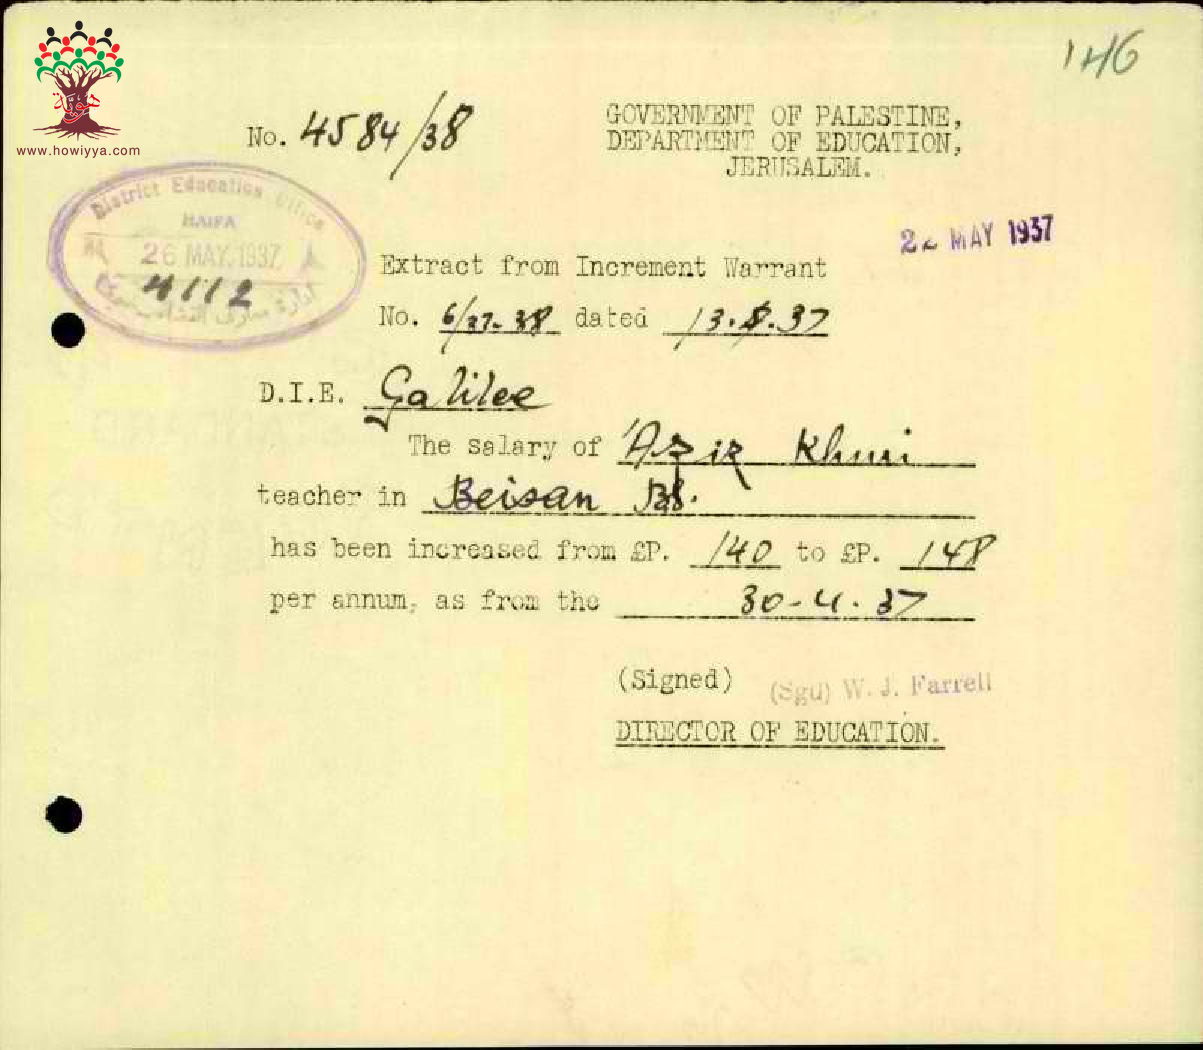 146
www.howiyya.com
No. 4584/38
GOVERNMENT OF PALESTINE,
DEPARTMENT OF EDUCATION,
JERUSALEM.
District Education Office
HAIFA
26 MAY. 1937
4112
22 MAY 1937
Extract from Increment Warrant
No. 6/37-38 dated 13.5.37
D.I.E. Galilee
The salary of 'Aziz Khuri
teacher in Beisan BS.
has been increased from £P. 140 to £P. 148
per annum, as from the 30-4.37
(Signed) (Sgd) W. J. Farrell
DIRECTOR OF EDUCATION.